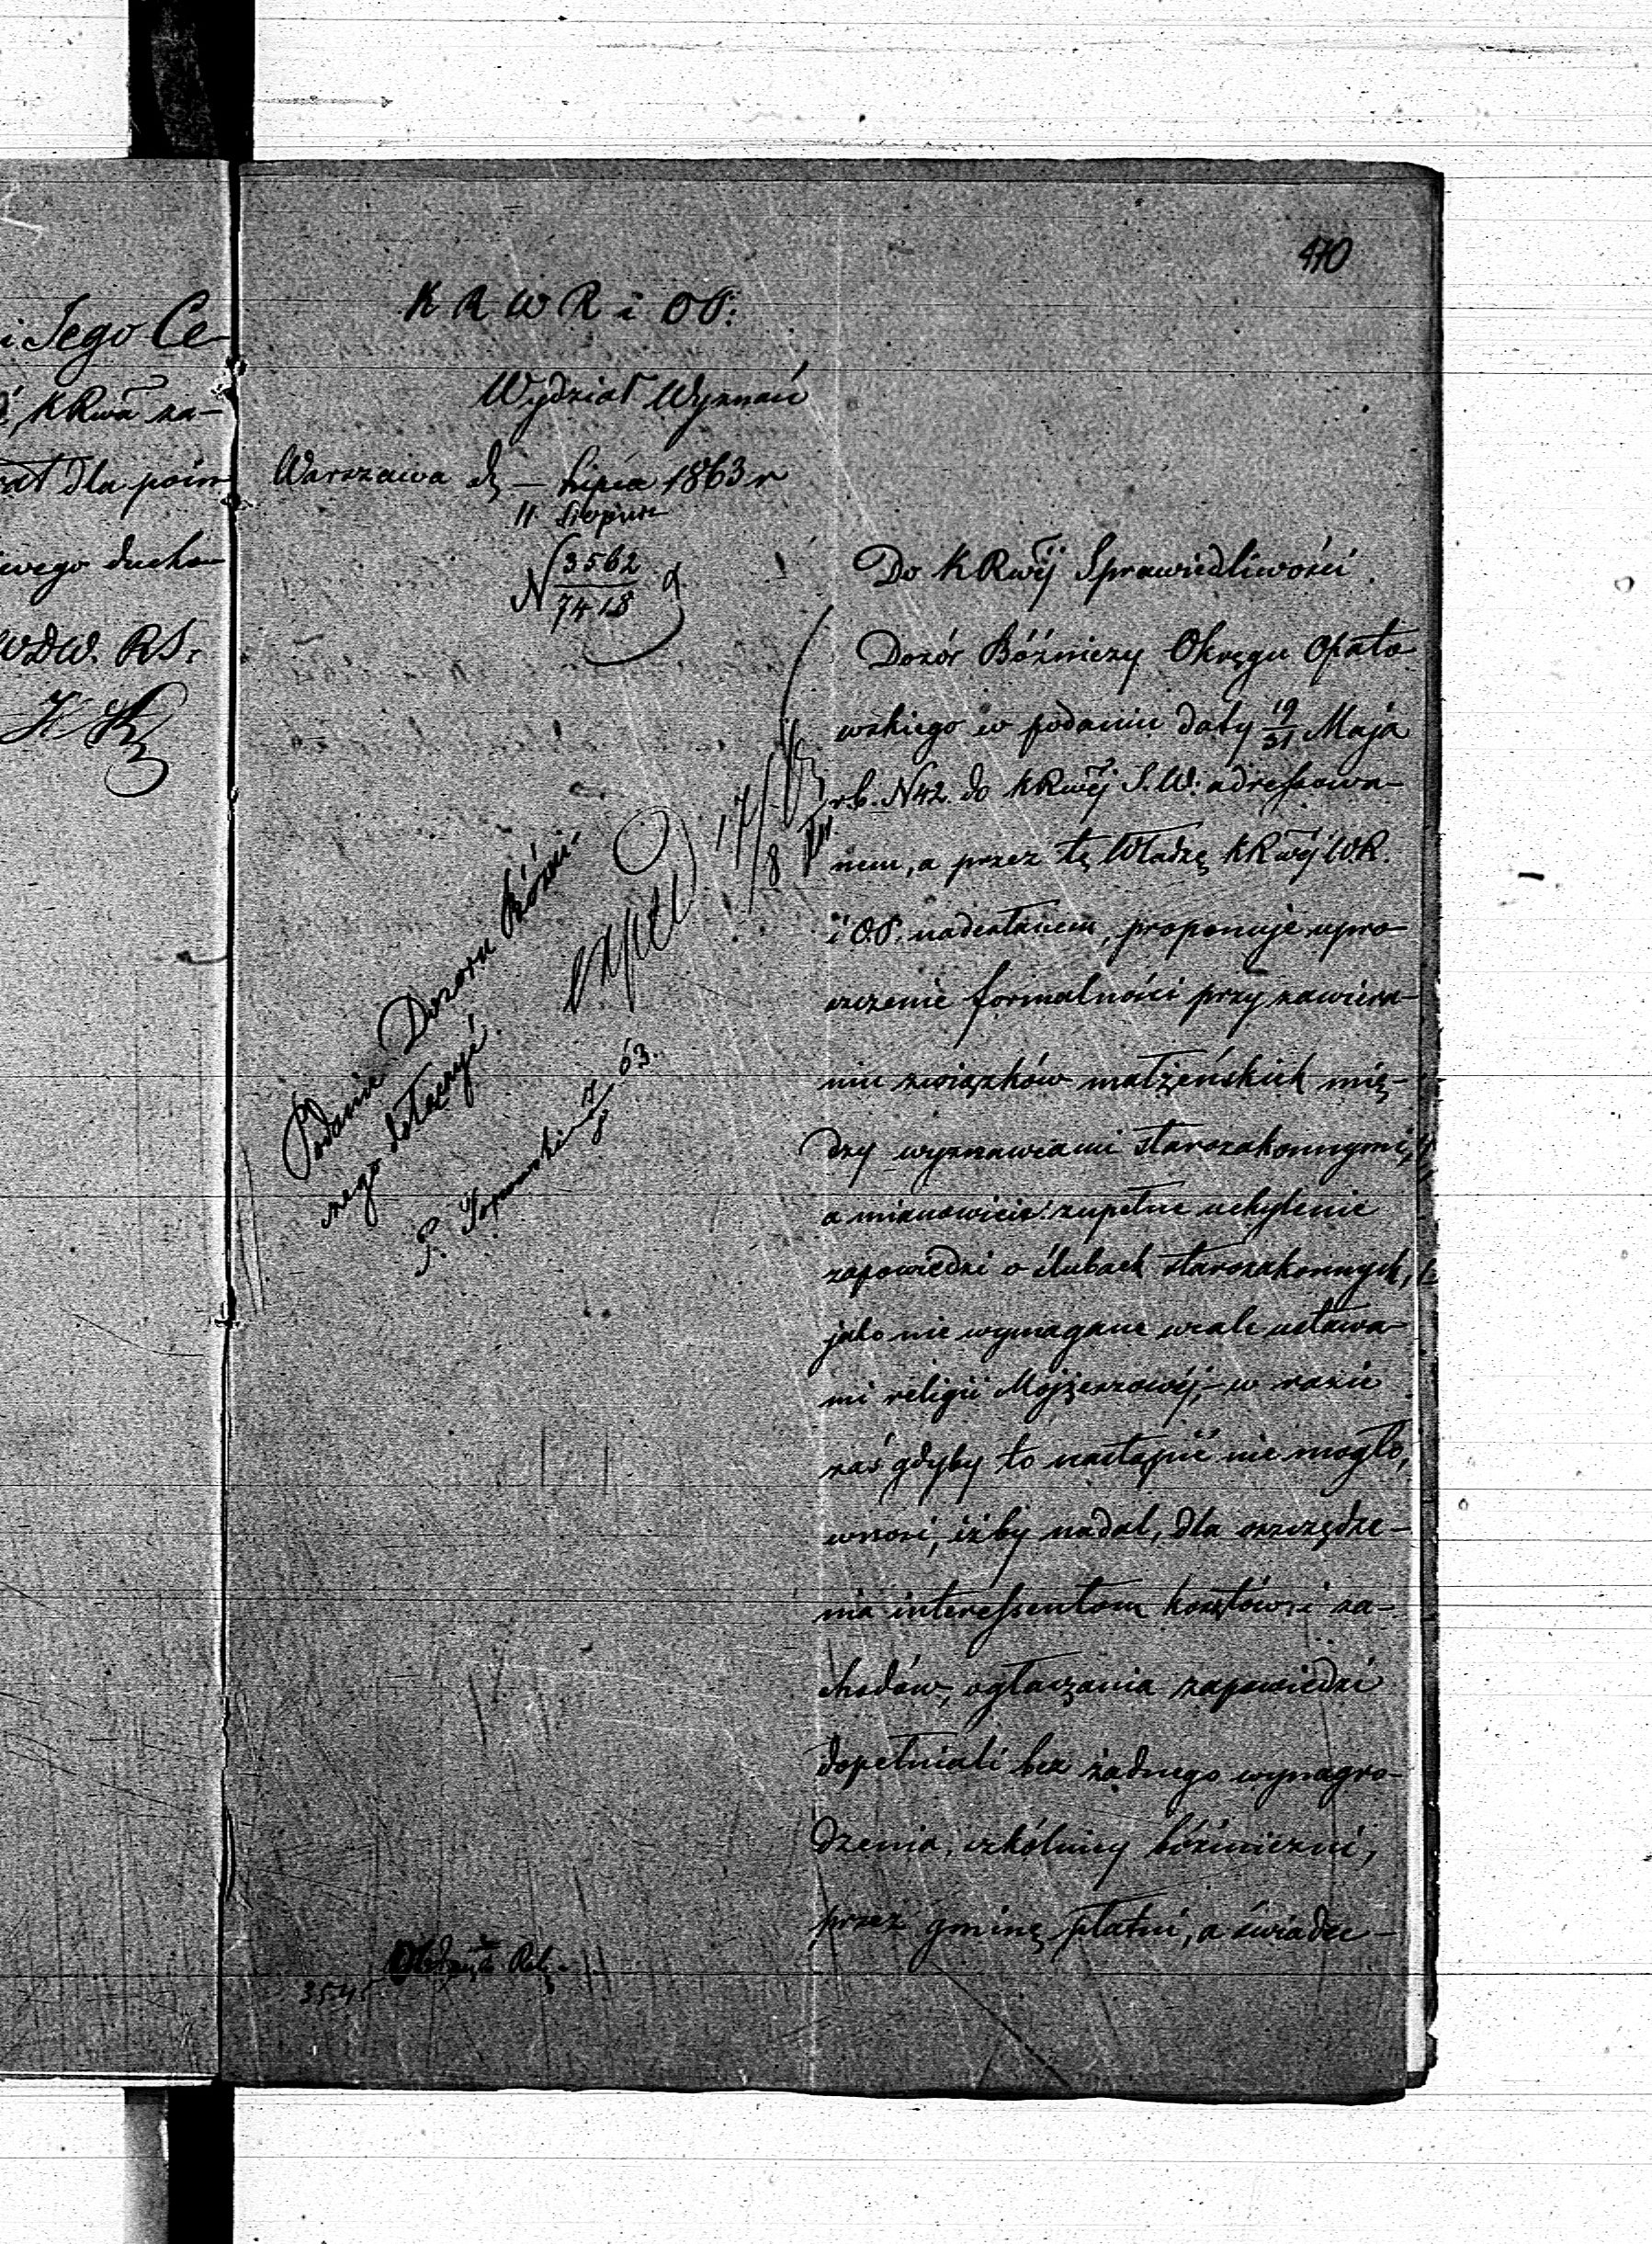 470
i Jego Ce-
KRwa za-
dla poin
wego ducho-
WDW. RS.
K R W R i OP:
Wydział Wyznań
Warszawa d — Lipca 1863 r
11 Sierpnia
N 3562
7418
Do KRwéj Sprawiedliwości
Dozór Bóżniczy Okręgu Opato
wskiego w podaniu daty 19/31 Maja
r.b. N 42. do KRwéj S.W: adressowa-
nem, a przez tę Władzę KRwéj WR.
i O.P. nadesłanem, proponuje upro-
szczenie formalności przy zawiera-
niu związków małżeńskich mię-
dzy wyznawcami starozakonnymi,
a mianowicie: zupełne uchylenie
zapowiedzi o ślubach starozakonnych,
jako nie wymagane wcale ustawa-
mi religii Mojżeszowéj, – w razie
zaś gdyby to nastąpić nie mogło,
wnosi, iżby nadal, dla oszczędze-
nia interessentom kosztów i za-
chodów, ogłaszania zapowiedzi
dopełniali bez żadnego wynagro-
dzenia, szkólnicy bóżniczni,
przez gminę płatni, a świadec-
Podanie Dozoru Bóżni-
czego dołączyć.
17/8 63.
expd 17/8
3545